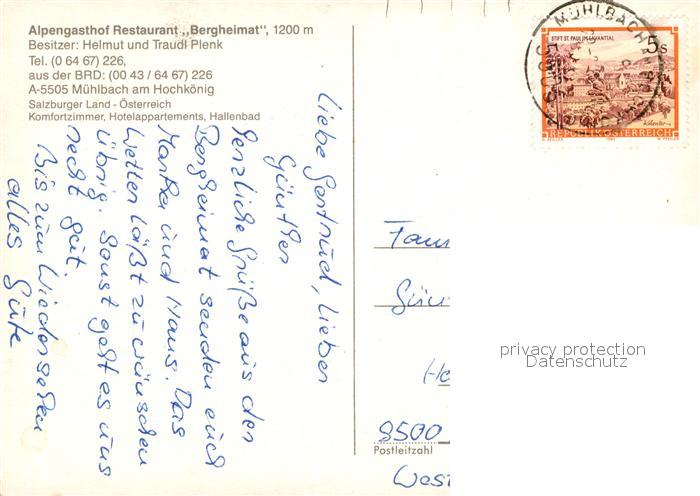 Alpengasthof Restaurant „Bergheimat“, 1200 m
Besitzer: Helmut und Traudl Plenk
Tel. (0 64 67) 226,
aus der BRD: (00 43 / 64 67) 226
A-5505 Mühlbach am Hochkönig
Salzburger Land - Österreich
Komfortzimmer, Hotelappartements, Hallenbad
Liebe Gertrud, Lieber
Günther
herzliche Grüße aus der
Bergheimat senden euch
Martha und Hans. Das
Wetter läßt zu wünschen
übrig. Sonst geht es uns
recht gut.
Bis zum Wiedersehen
alles Gute
MÜHLBACH AM
5505
STIFT ST. PAUL IM LAVANTTAL
5s
REPUBLIK ÖSTERREICH
Fam
Gün
He
8500
Postleitzahl
West
privacy protection
Datenschutz